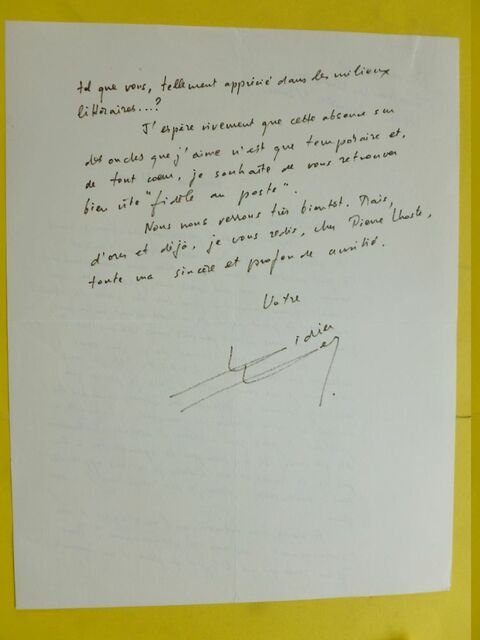 tel que vous, tellement apprécié dans les milieux
littéraires...?
J'espère vivement que cette absence sur
des ondes que j'aime n'est que temporaire et,
de tout cœur, je souhaite de vous retrouver
bien vite "fidèle au poste".
Nous nous verrons très bientôt. Mais,
d'ores et déjà, je vous redis, cher Pierre Lhoste,
toute ma sincère et profonde amitié.
Votre
idier